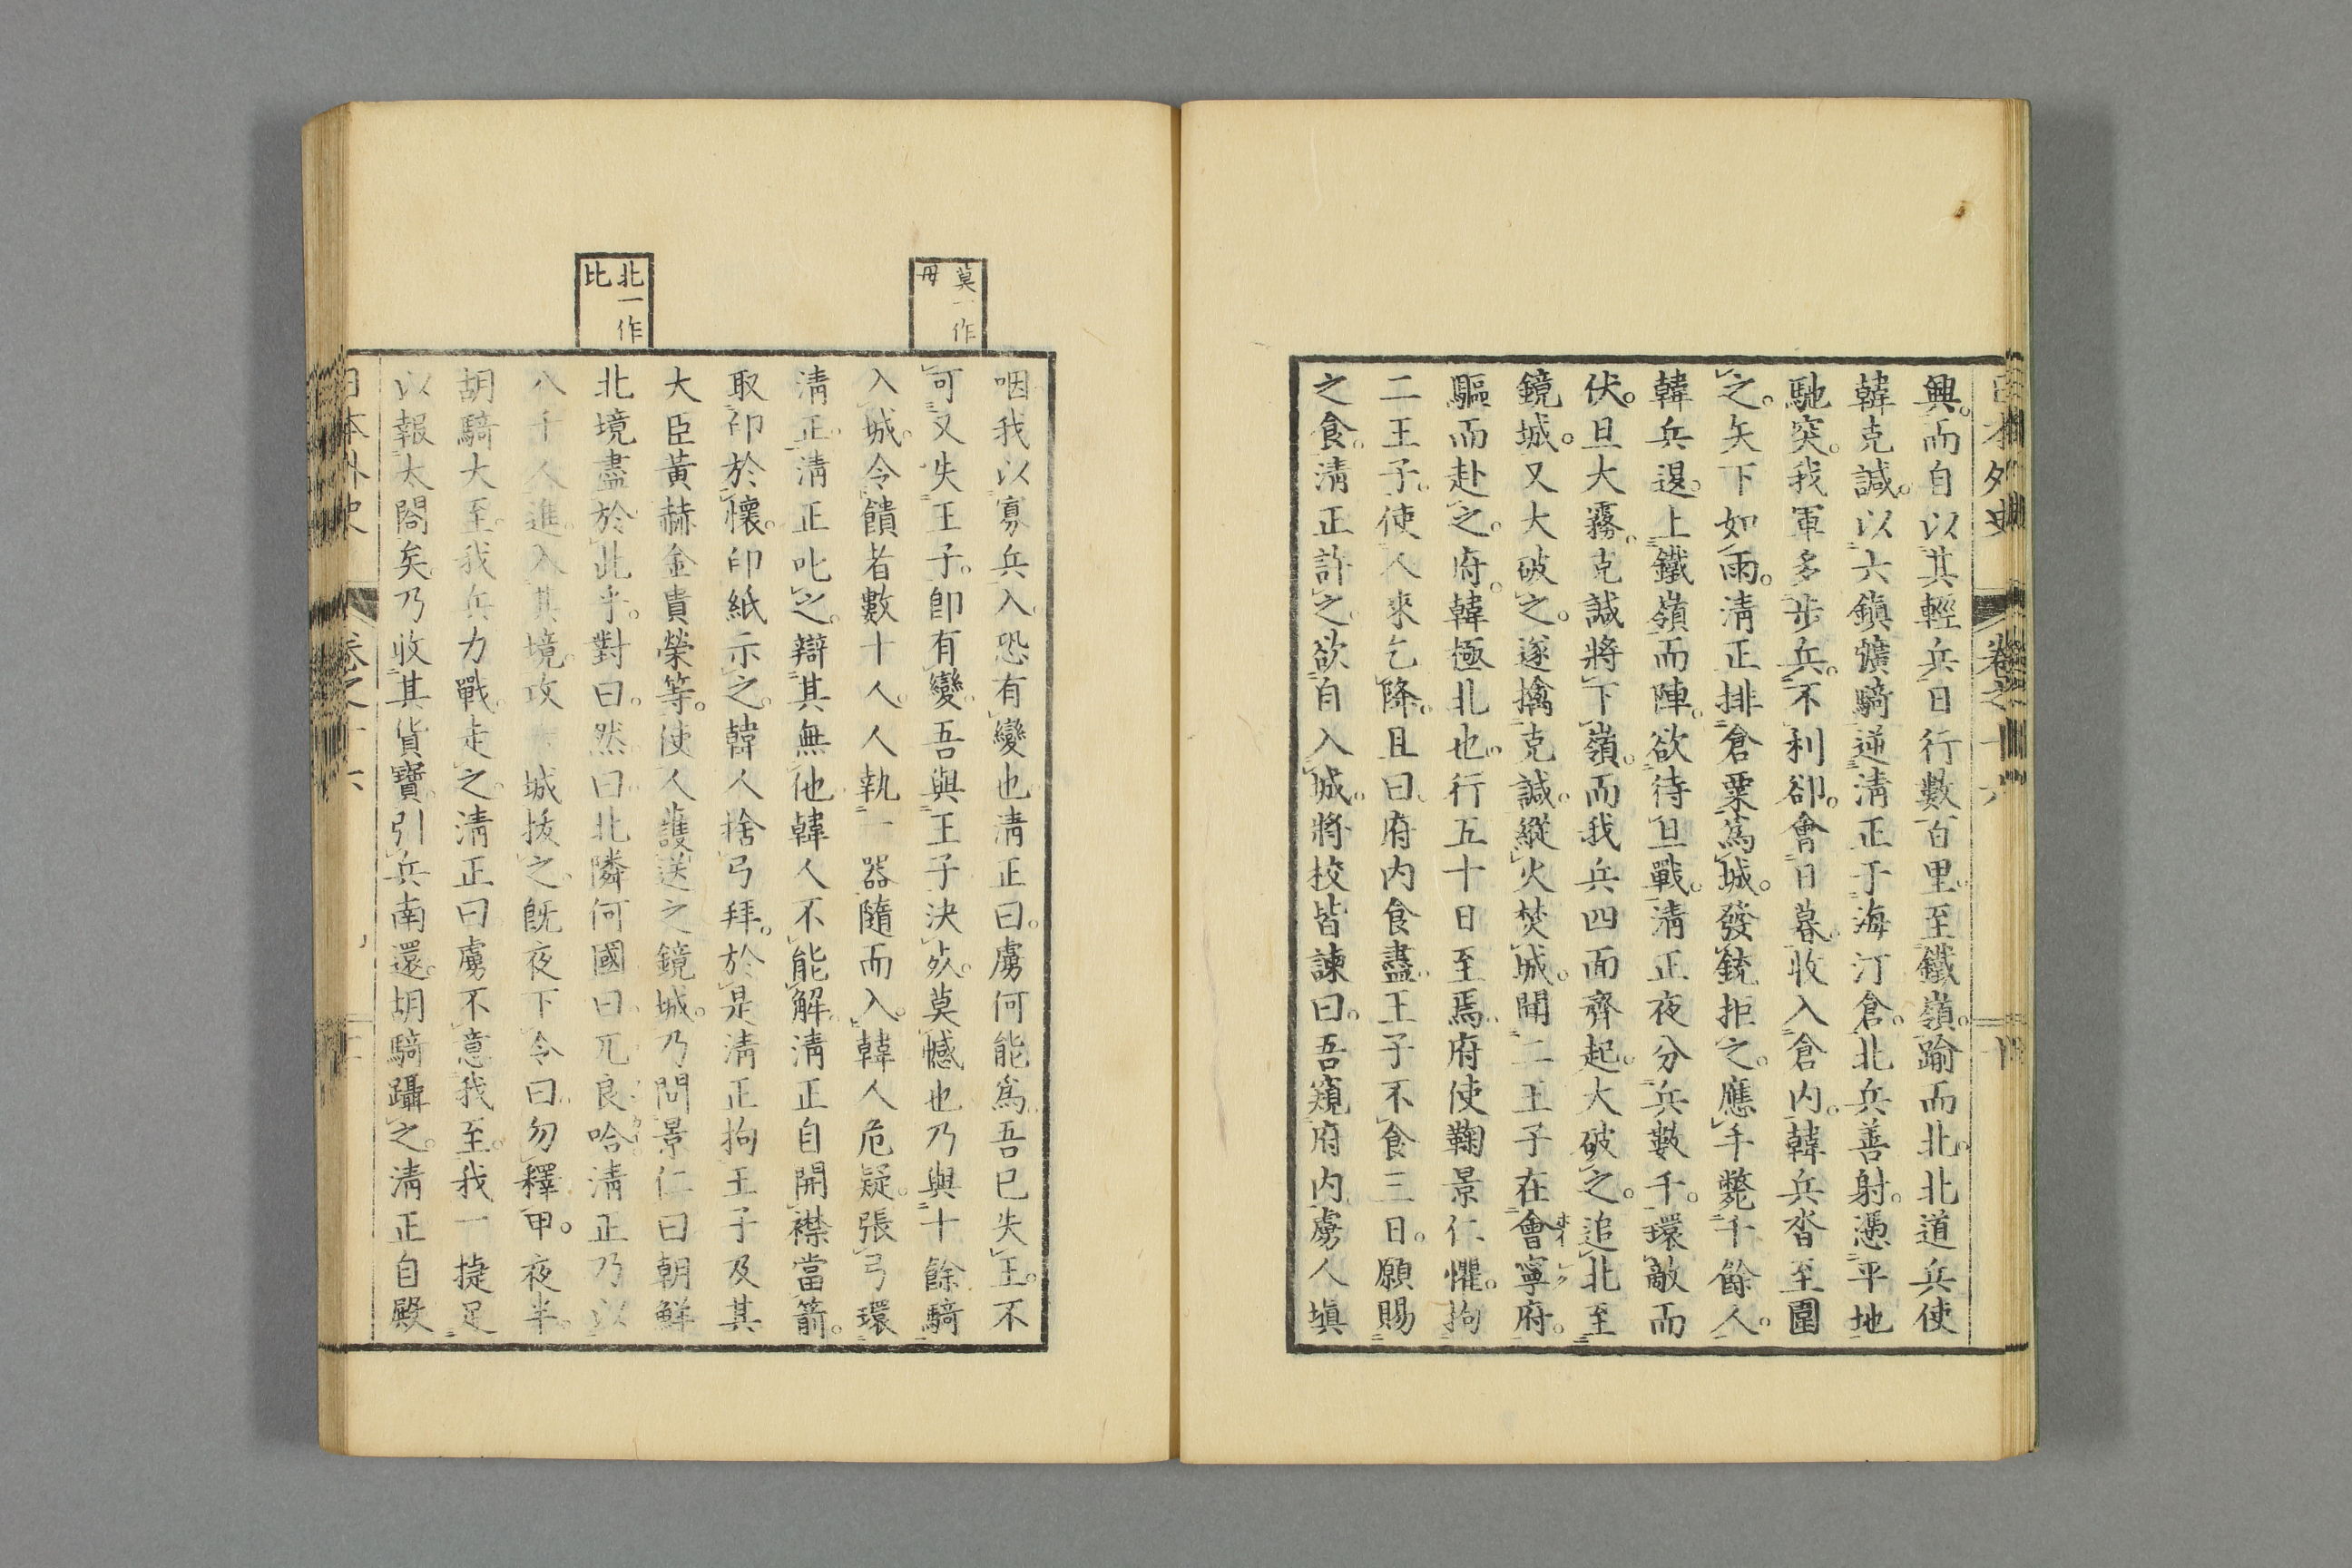 日本外史 卷之十六 十
興。而自以其輕兵日行數百里。至鐵嶺。踰而北。北道兵使
韓克諴。以六鎮獷騎逆淸正于海汀倉。北兵善射。憑平地
馳突。我軍多步兵。不利卻。會日暮。收入倉內。韓兵沓至圍
之。矢下如雨。淸正排倉粟爲城。發銃拒之。應手斃千餘人。
韓兵退。上鐵嶺而陣。欲待旦戰。淸正夜分兵數千。環敵而
伏。旦大霧。克諴將下嶺。而我兵四面齊起。大破之。追北至
鏡城。又大破之。遂擒克諴。縱火焚城。聞二王子在會寧府。
驅而赴之。府。韓極北也。行五十日至焉。府使鞠景仁懼。拘
二王子。使人來乞降。且曰府內食盡。王子不食三日。願賜
之食。淸正許之。欲自入城。將校皆諫曰。吾窺府內。虜人塡
咽我以寡兵入。恐有變也淸正曰。虜何能爲。吾已失王。不
可又失王子。卽有變。吾與王子決死。莫憾也乃與十餘騎
入城。令饋者數十人。人執一器隨而入。韓人危疑。張弓環
淸正。淸正叱之。辯其無他。韓人不能解。淸正自開襟當箭。
取印於懷。印紙示之。韓人捨弓拜。於是淸正拘王子及其
大臣黃赫金貴榮等。使人護送之鏡城。乃問景仁曰朝鮮
北境盡於此乎。對曰。然。曰北隣何國。曰。兀良哈。淸正乃以
八千人進。入其境。攻 城拔之。旣夜下令曰。勿釋甲。夜半。
胡騎大至。我兵力戰。走之。淸正曰。虜不意我至。我一捷足
以報太閤矣。乃收其貨寶。引兵南還。胡騎躡之。淸正自殿
日本外史 卷之十六
莫一作
毋
北一作
比